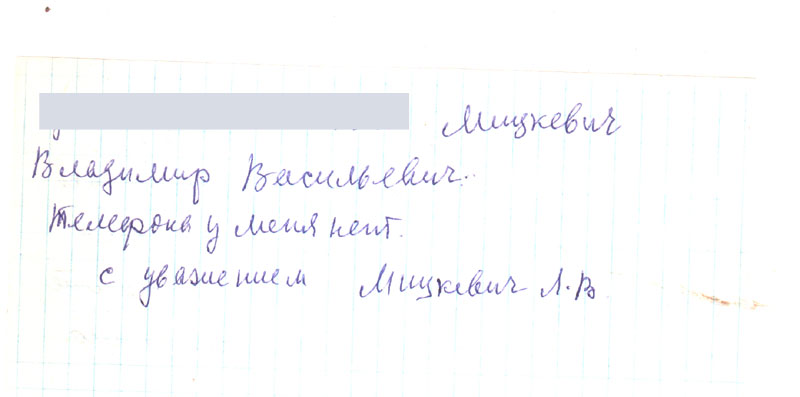 Мицкевич
Владимир Васильевич.
Телефона у меня нет.
с уважением Мицкевич Л.В